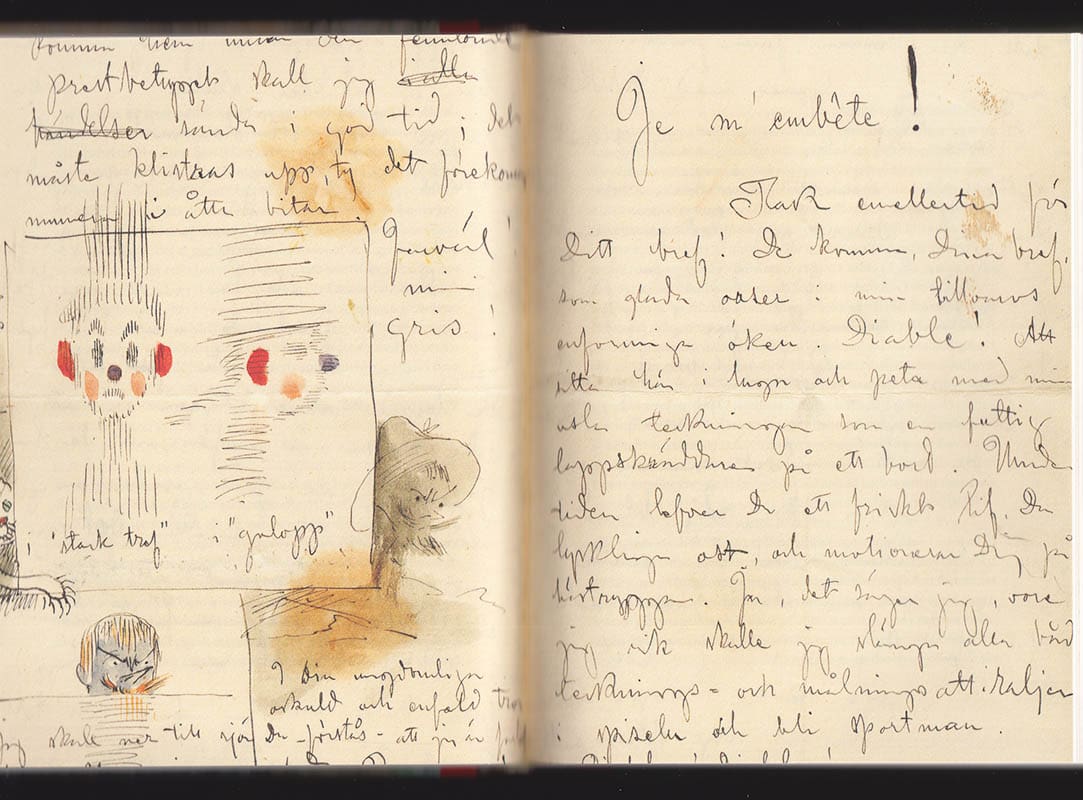 komma hem innan den
prestbetyget skall jag
händelser sända i god tid; det
måste klistras upp, ty det förekom
i åtta bitar.
Farväl!
min
gris!
i "stark traf"
i "galopp"
I Din ungdomliga
oskuld och enfald tror
Du - förstås - att jag är
jag skall ner till sjön
Je m'embête!
Tack emellertid för
Ditt bref! De komma, Dina bref,
som glada oaser i min
enformiga öken. Diable! Att
sitta här i lugn och peta med min
usla teckningar som en fattig
lappskräddare på ett bord. Under
tiden lefver Du ett friskt lif, Du
lycklinge ost, och motionerar Dig på
hästryggen. Ja, det säger jag, vore
jag rik skulle jag slänga alla
tecknings- och målningsattiraljer
i spiseln och bli sportman.